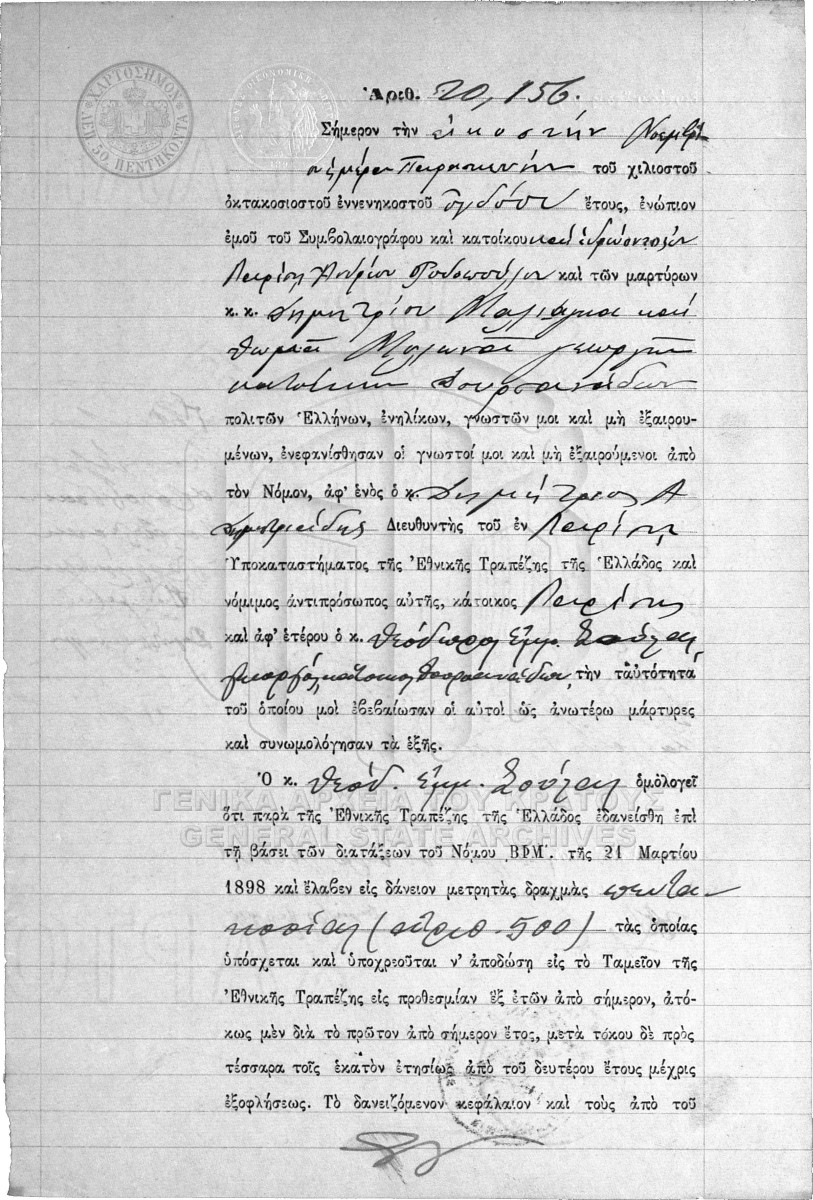 ΧΑΡΤΟΣΗΜΟΝ
ΛΕΠ. 50 ΠΕΝΤΗΚΟΝΤΑ
Ἀριθ. 20,156.
Σήμερον τὴν εἰκοστὴν Νοεμβρί
ου ἡμέραν Παρασκευὴν τοῦ χιλιοστοῦ
ὀκτακοσιοστοῦ ἐννενηκοστοῦ ὀγδόου ἔτους, ἐνώπιον
ἐμοῦ τοῦ Συμβολαιογράφου καὶ κατοίκου
Λαρίσης Ἀνδρέου Ροδοπούλου καὶ τῶν μαρτύρων
κ. κ. Δημητρίου καὶ
Θωμᾶ Μυλωνᾶ
κατοίκων
πολιτῶν Ἑλλήνων, ἐνηλίκων, γνωστῶν μοι καὶ μὴ ἐξαιρου-
μένων, ἐνεφανίσθησαν οἱ γνωστοί μοι καὶ μὴ ἐξαιρούμενοι ἀπὸ
τὸν Νόμον, ἀφ' ἑνὸς ὁ κ. Δημήτριος Δ
ημητριάδης Διευθυντὴς τοῦ ἐν Λαρίσῃ
Ὑποκαταστήματος τῆς Ἐθνικῆς Τραπέζης τῆς Ἑλλάδος καὶ
νόμιμος ἀντιπρόσωπος αὐτῆς, κάτοικος Λαρίσης
καὶ ἀφ' ἑτέρου ὁ κ. Θεόδωρος Ἐμμ.
γεωργός, κάτοικος τὴν ταὐτότητά
τοῦ ὁποίου μοὶ ἐβεβαίωσαν οἱ αὐτοὶ ὡς ἀνωτέρω μάρτυρες
καὶ συνωμολόγησαν τὰ ἑξῆς.
Ὁ κ. Θεόδ. Ἐμμ. ὁμολογεῖ
ΓΕΝΙΚΑ ΑΡΧΕΙΑ ΤΟΥ ΚΡΑΤΟΥΣ
ὅτι παρὰ τῆς Ἐθνικῆς Τραπέζης τῆς Ἑλλάδος ἐδανείσθη ἐπὶ
GENERAL STATE ARCHIVES
τῇ βάσει τῶν διατάξεων τοῦ Νόμου ΒΦΜ'. τῆς 21 Μαρτίου
1898 καὶ ἔλαβεν εἰς δάνειον μετρητὰς δραχμὰς πεντα-
κοσίας (ἀριθ. 500) τὰς ὁποίας
ὑπόσχεται καὶ ὑποχρεοῦται ν' ἀποδώσῃ εἰς τὸ Ταμεῖον τῆς
Ἐθνικῆς Τραπέζης εἰς προθεσμίαν ἓξ ἐτῶν ἀπὸ σήμερον, ἀτό-
κως μὲν διὰ τὸ πρῶτον ἀπὸ σήμερον ἔτος, μετὰ τόκου δὲ πρὸς
τέσσαρα τοῖς ἑκατὸν ἐτησίως ἀπὸ τοῦ δευτέρου ἔτους μέχρις
ἐξοφλήσεως. Τὸ δανειζόμενον κεφάλαιον καὶ τοὺς ἀπὸ τοῦ